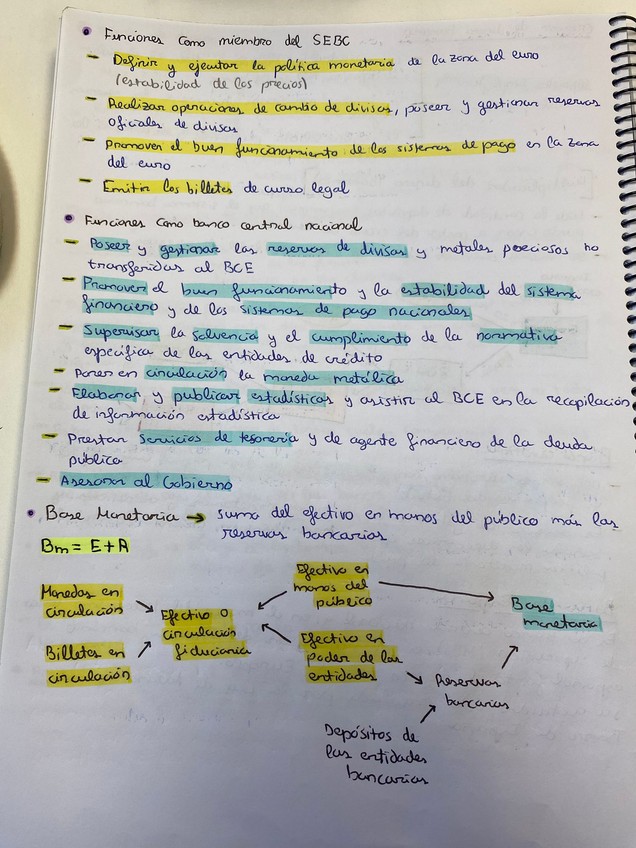 • Funciones como miembro del SEBC
- Definir y ejecutar la política monetaria de la zona del euro
(estabilidad de los precios)
- Realizar operaciones de cambio de divisas, poseer y gestionar reservas
oficiales de divisas
- Promover el buen funcionamiento de los sistemas de pago en la zona
del euro
- Emitir los billetes de curso legal
• Funciones como banco central nacional
- Poseer y gestionar las reservas de divisas y metales preciosos no
transferidas al BCE
- Promover el buen funcionamiento y la estabilidad del sistema
financiero y de los sistemas de pago nacionales
- Supervisar la solvencia y el cumplimiento de la normativa
específica de las entidades de crédito
- Poner en circulación la moneda metálica
- Elaborar y publicar estadísticas y asistir al BCE en la recopilación
de información estadística
- Prestar servicios de tesorería y de agente financiero de la deuda
pública
- Asesorar al Gobierno
• Base Monetaria → suma del efectivo en manos del público más las
reservas bancarias
Bm = E + R
Monedas en
circulación
Billetes en
circulación
Efectivo o
circulación
fiduciaria
Efectivo en
manos del
público
Efectivo en
poder de las
entidades
Depósitos de
las entidades
bancarias
Reservas
bancarias
Base
monetaria